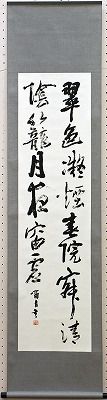 翠色凝煙春院寂清
陰竹籠月夜窗虛